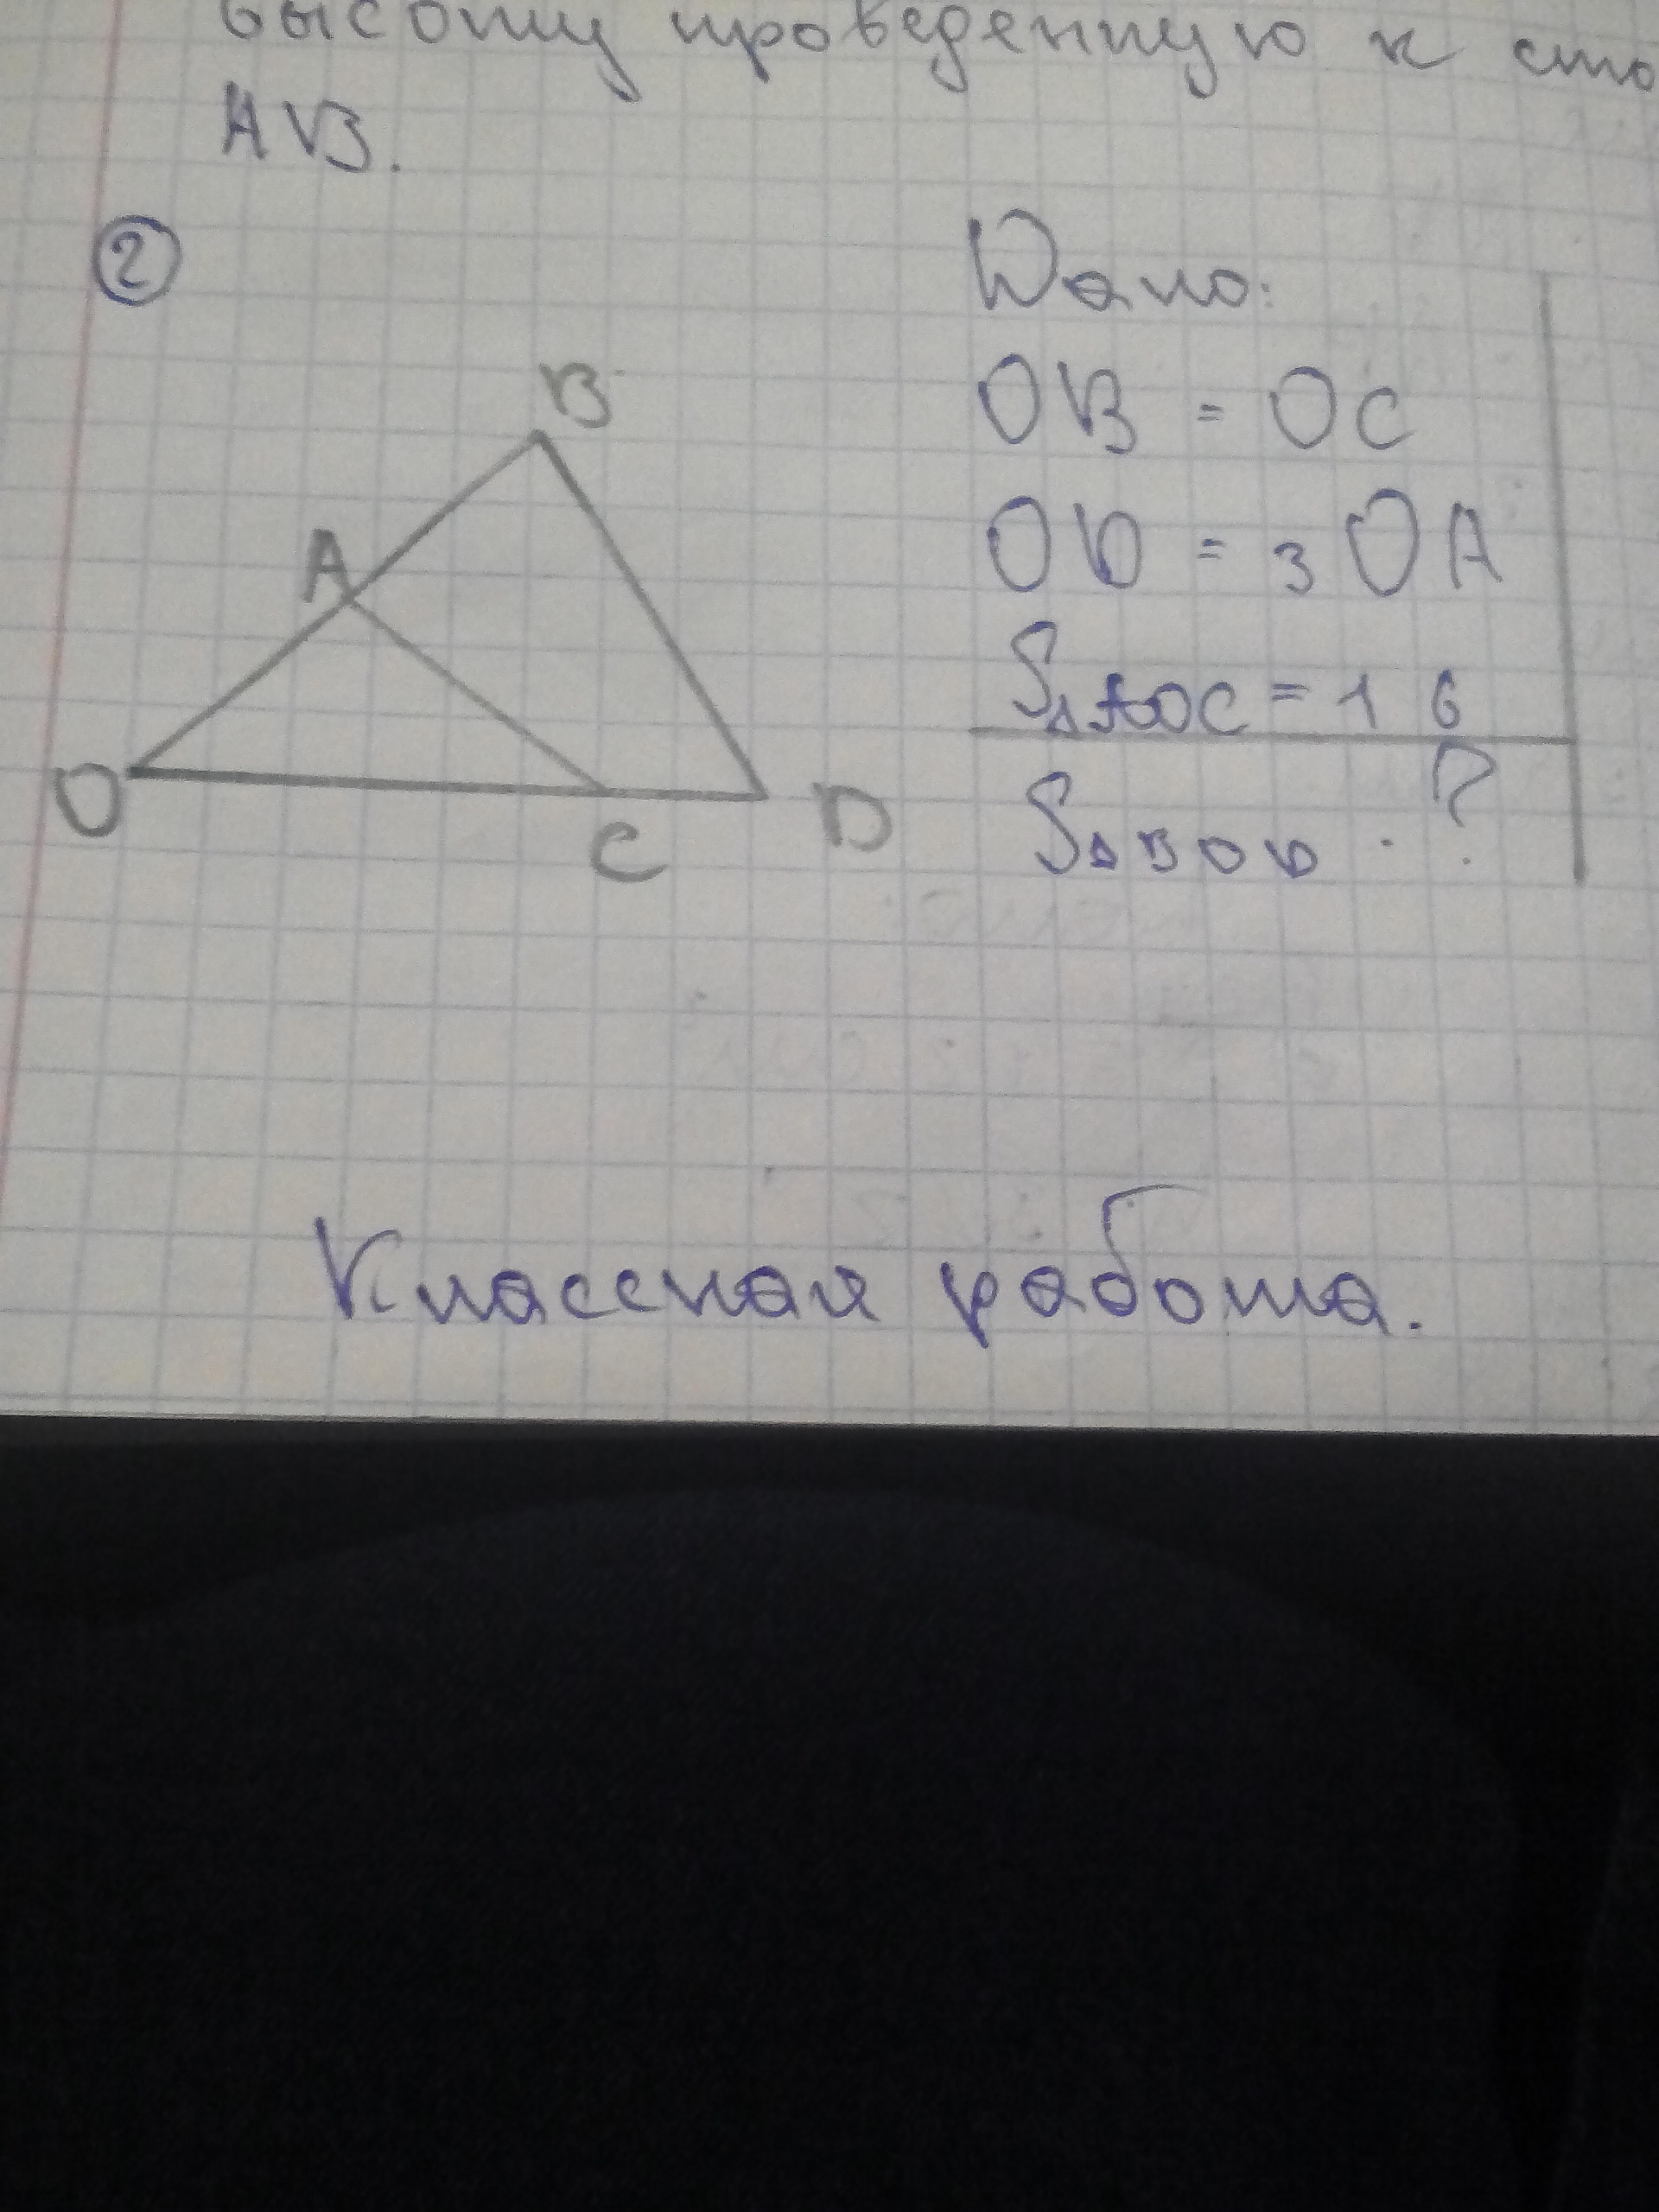 высоту проведенную к сто
AB.
2
B
A
O
C
D
Дано:
OB = OC
OD = 3 OA
S△AOC = 16
S△BOD - ?
Классная работа.